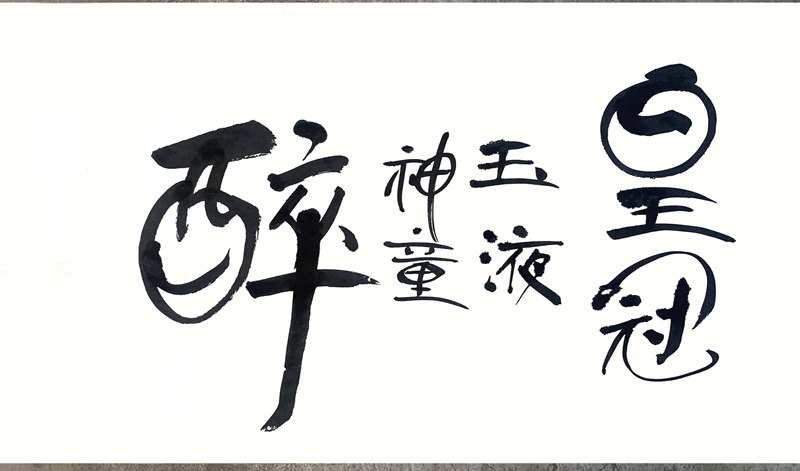 皇冠
玉液
神童
醉